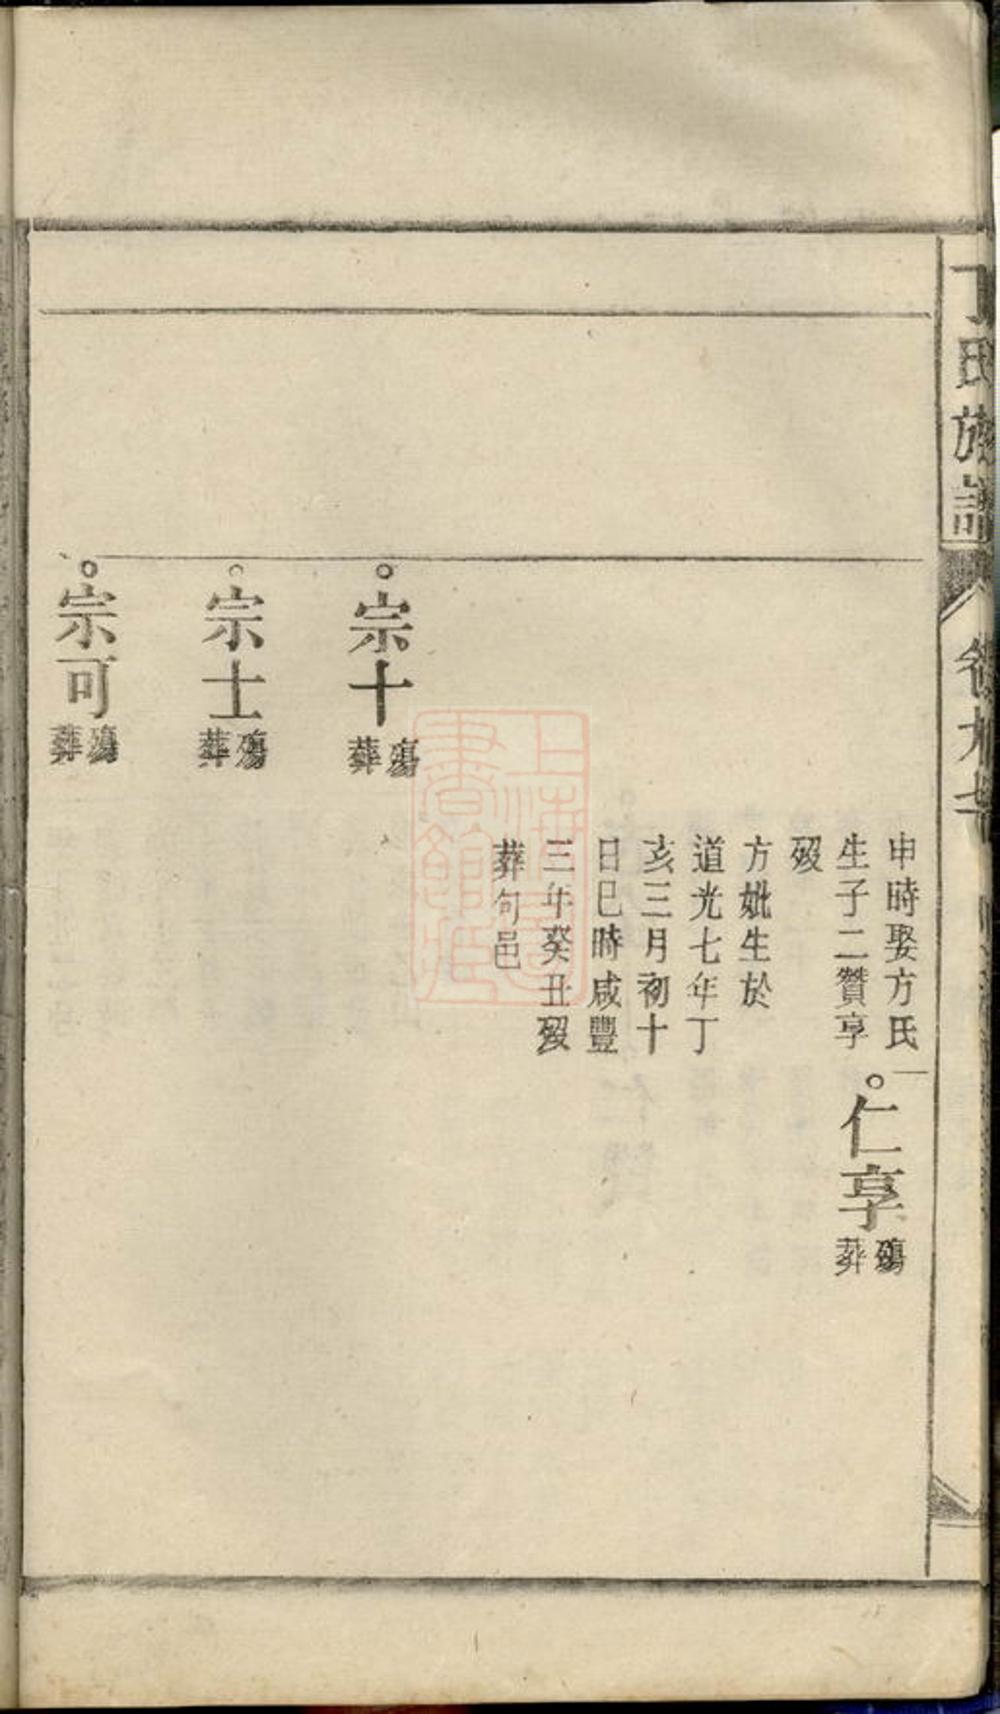 丁氏族譜
卷九十
申時娶方氏
生子二贊享
歿
方妣生於
道光七年丁
亥三月初十
日巳時咸豐
三年癸丑歿
葬句邑
仁享
殤
葬
宗十
殤
葬
宗士
殤
葬
宗可
殤
葬
上海圖
書館藏